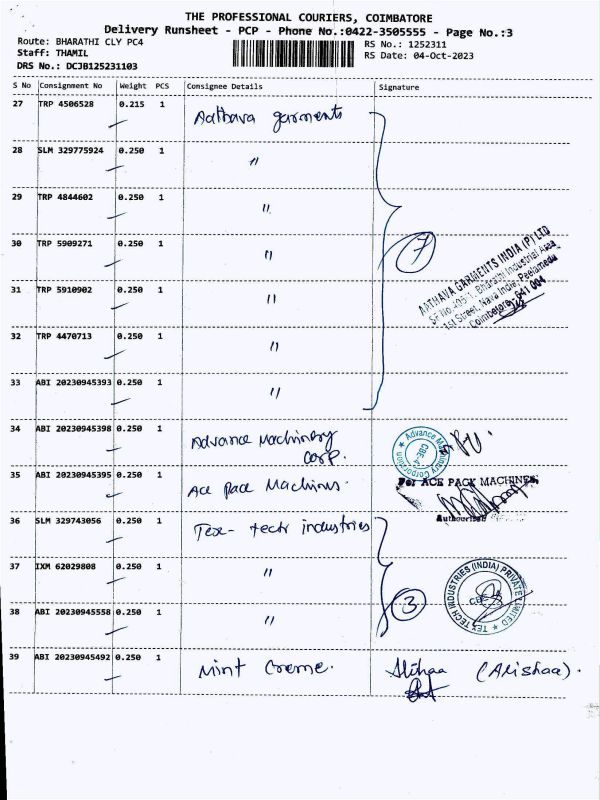 THE PROFESSIONAL COURIERS, COIMBATORE
Delivery Runsheet - PCP - Phone No.:0422-3505555 - Page No.:3
Route: BHARATHI CLY PC4
RS No.: 1252311
Staff: THAMIL
RS Date: 04-Oct-2023
DRS No.: DCJB125231103
S No Consignment No Weight PCS Consignee Details Signature
27 TRP 4506528 0.215 1 Aathava garments
28 SLM 329775924 0.250 1 "
29 TRP 4844602 0.250 1 "
30 TRP 5909271 0.250 1 "
7
AATHAVA GARMENTS INDIA (P) LTD
SF No. 405-1, Bharathi Industrial Area
1st Street, Nava India, Peelamedu
Coimbatore - 641 004
31 TRP 5910902 0.250 1 "
32 TRP 4470713 0.250 1 "
33 ABI 20230945393 0.250 1 "
34 ABI 20230945398 0.250 1 Advance Machinery
corp.
Advance Machinery Corporation
CBE-4
35 ABI 20230945395 0.250 1 Ace Pace Machines.
For ACE PACK MACHINES,
36 SLM 329743056 0.250 1 Tex-tech industries
37 IXM 62029808 0.250 1 "
3
TEX TECH INDUSTRIES (INDIA) PRIVATE LIMITED
38 ABI 20230945558 0.250 1 "
39 ABI 20230945492 0.250 1 Mint Creme. (Alishaa).